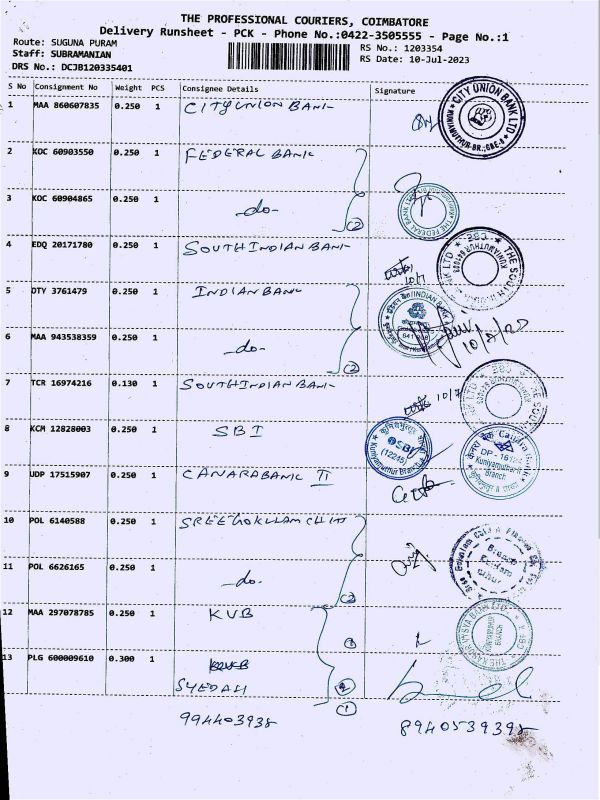 THE PROFESSIONAL COURIERS, COIMBATORE
Delivery Runsheet - PCK - Phone No.:0422-3505555 - Page No.:1
Route: SUGUNA PURAM
RS No.: 1203354
Staff: SUBRAMANIAN
RS Date: 10-Jul-2023
DRS No.: DCJB120335401
S No Consignment No Weight PCS Consignee Details Signature
1 MAA 860607835 0.250 1 CITY UNION BANK
CITY UNION BANK LTD
2 KOC 60903550 0.250 1 FEDERAL BANK
3 KOC 60904865 0.250 1 -do- (2)
THE FEDERAL BANK
4 EDQ 20171780 0.250 1 SOUTH INDIAN BANK
10/7
KUNIAMUTHUR THE SOUTH
5 DTY 3761479 0.250 1 INDIAN BANK
INDIAN BANK
6 MAA 943538359 0.250 1 -do- (2)
7 TCR 16974216 0.130 1 SOUTH INDIAN BANK
10/7
8 KCM 12828003 0.250 1 SBI
SBI
Kuniyamuthur Branch
Canara Bank
Kuniyamuthur II
Branch
9 UDP 17515907 0.250 1 CANARA BANK II
10 POL 6140588 0.250 1 SREE GOKULAM CHITS
11 POL 6626165 0.250 1 -do- (2)
Branch
12 MAA 297078785 0.250 1 KVB (1)
THE KARUR VYSYA BANK LTD
BRANCH
13 PLG 600009610 0.300 1
SYED ALI
(1)
994403938 8940539398